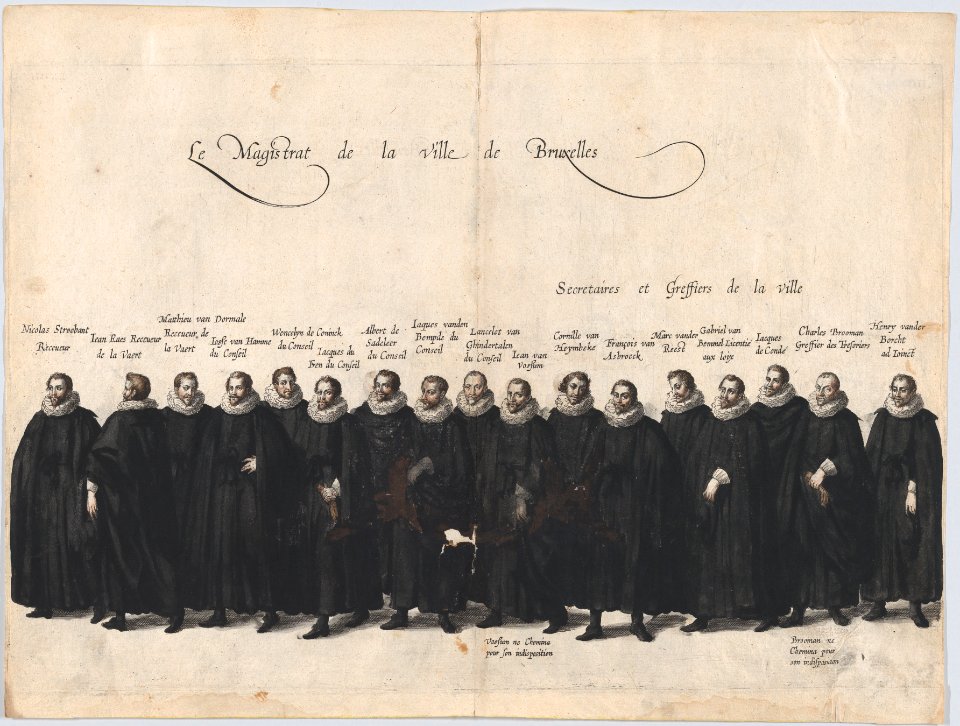 Le Magistrat de la ville de Bruxelles
Secretaires et Greffiers de la ville
Nicolas Stroobant
Receveur
Iean Raes Receveur
de la Vaert
Matthieu van Dormale
Receveur de
la Vaert
Iosse van Hamme
du Conseil
Wencelyn de Coninck
du Conseil
Iacques du
Ben du Conseil
Albert de
Sadeleer
du Conseil
Iaques vanden
Bempde du
Conseil
Lancelot van
Ghindertalen
du Conseil
Iean van
Voessum
Cornille van
Heymbeke
François van
Asbroeck
Marc vander
Reest
Gabriel van
Bemmel Licentié
aux loix
Iacques
de Condé
Charles Brooman
Greffier des Theforiers
Henry vander
Borcht
ad Ioinct
Voessum ne Chemina
pour son indisposition
Brooman ne
Chemina pour
son indisposition